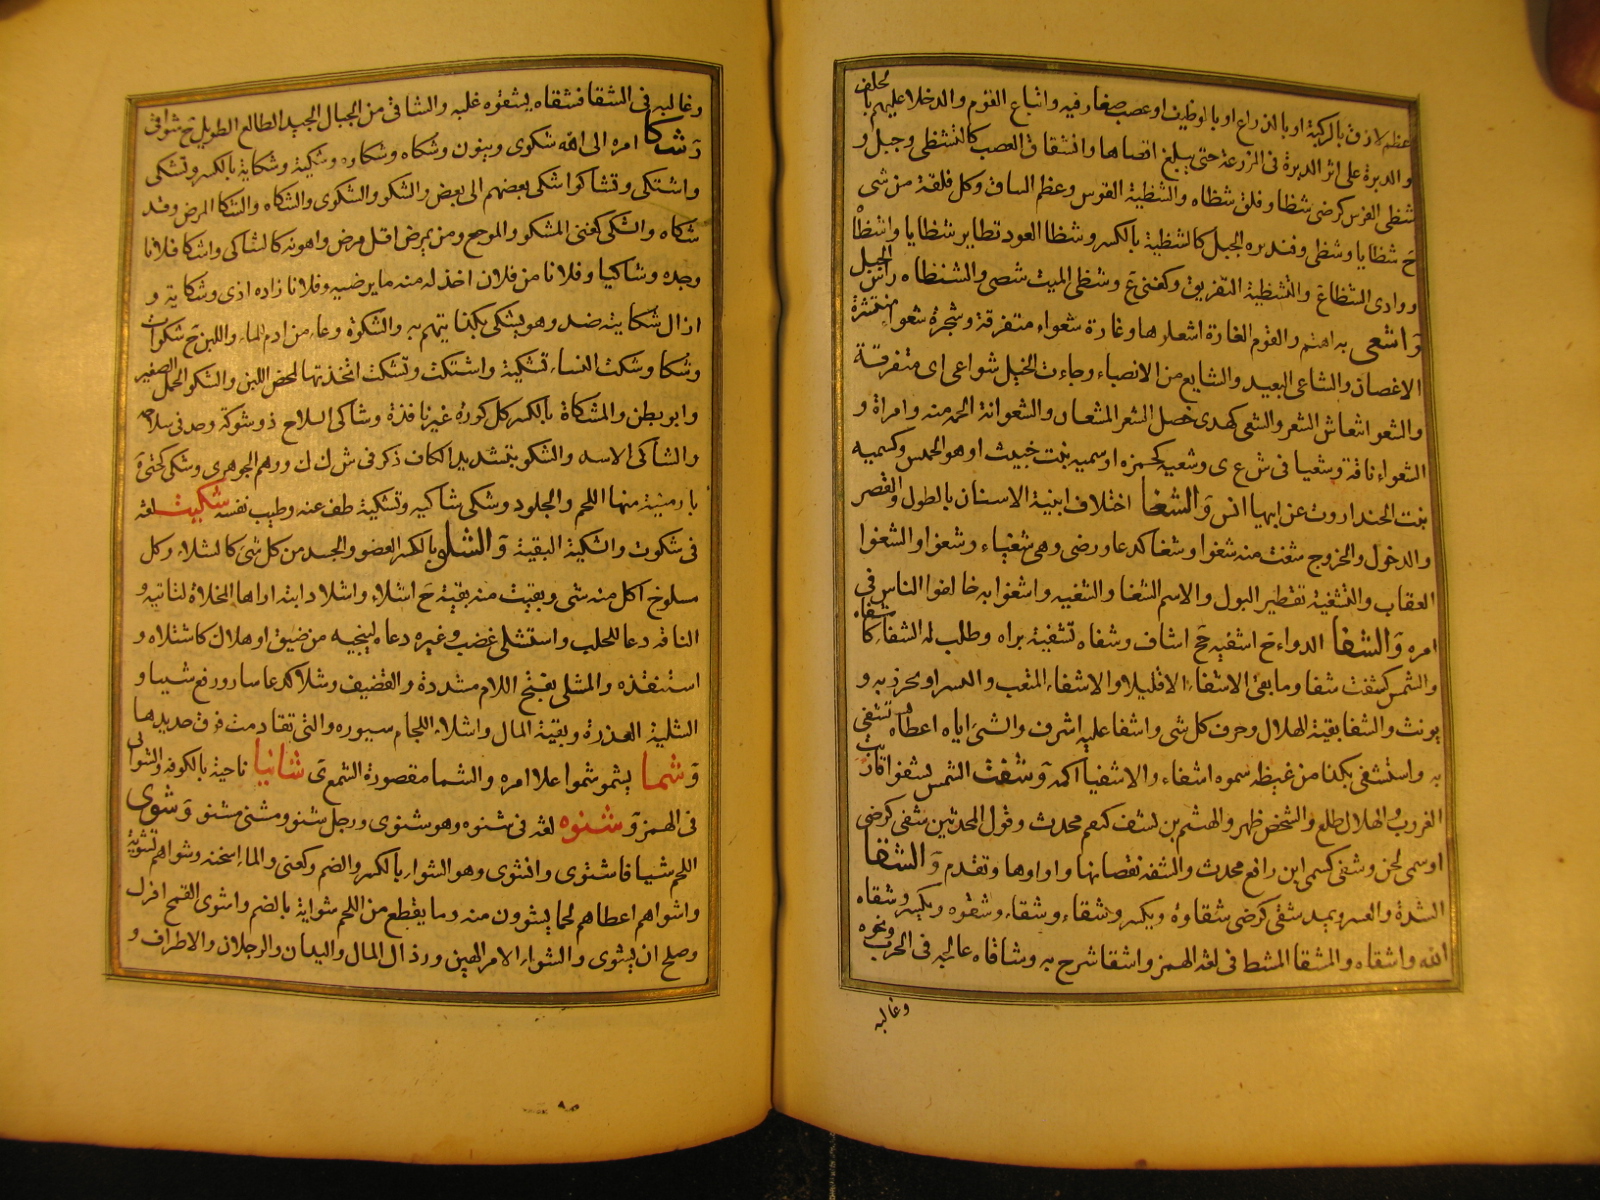 عظم لازق بالركبة او بالذراع او بالوظيف او عصب صغار فيه واتباع القوم والدخلا عليهم بالحلف
والدبرة على اثر الدبرة فى المزرعة حتى يبلغ اقصاها وانشقاق العصب كالتشظى وجبل و
شظى الفرس كرضى شظا وفلق شظاه والشظية القوس وعظم الساق وكل فلقة من شى
ج شظايا وشظى وفنديره الجبل كالشظية بالكسر وشظا العود تطاير شظايا واشظاه
ووادى الشظاغ والتشظية التفريق وكغنى ع وشظى الميت شصى والشنظاه راس الجبل
وَاشعى به اهتم والقوم الغارة اشعلوها وغارة شعواء متفرقة وشجرة شعواء منتشرة
الاغصان والشاعى البعيد والشايع من الانصباء وجاءت الخيل شواعى اى متفرقة
والشعو انتعاش الشعر والشعى كهدى خصل الشعر المشعان والشعوانة الجمه منه وامراة و
الشعواء ناقة وشعيا فى ش ع ى وشعيه كحمزه او سميه بنت خبيث او هو الحمس وكسميه
بنت الجنداروت عن ابيها انس وَالشغا اختلاف ابنية الاسنان بالطول والقصر
والدخول والخروج شغت سنه شغوا وشغا كدعا ورضى وهى شغياء وشغوا والشغوا
العقاب والتشغية تقطير البول والاسم الشغا والشغيه واشغوا به خالفوا الناس فى
امره وَالشفا الدواء ج اشفيه جج اشاف وشفاه تشفية براه وطلب له الشفاء كاشفاه
والشمس كشفت شفا وما بقى الا شفا الا قليلا والاشفاء المثقب والسراد يخرز به و
يونث والشفا بقية الهلال وحرف كل شى واشفا عليه اشرف والشى اياه اعطاه يستشفى
به واستشفى بكذا من غيظه سموه اشفاء والاشفيا اكمه وَشفت الشمس تشفوا قاربت
الغروب والهلال طلع والشخص ظهر والهشم بن شف كعم محدث وقول المحدثين شفى كرضى
او سمى لحن وشفى كسمى ابن رافع محدث والشفه نقصانها واو اوها وتقدم وَالشقا
الشدة والعسر ويمد شقى كرضى شقاوة ويكسر وشقاء وشقاء وشقوه ويكسر وشقاه
الله واشقاه والمشقا المشط فى لغة الهمز واشقا شرح به وشاقاه عالجه فى الحرب ونحوه
وغالبه
وغالبه فى الشقا فشقاه يشقوه غلبه والشاقى من الجبال الحيد الطالع الطويل ج شواقى
وَشكا امره الى الله شكوى وينون وشكاه وشكاوه وشكية وشكاية بالكسر وتشكى
واشتكى وتشاكوا شكى بعضهم الى بعض والشكو والشكوى والشكاه والشكا المرض وقد
شكاه والشكى كغنى المشكو والموجع ومن يمرض اقل مرض واهونه كالشاكى واشكا فلانا
وجده وشاكيا وفلانا من فلان اخذ له منه ما يرضيه وفلانا زاده اذى وشكاية و
ازال شكايته ضد وهو يشكى بكذا يتهم به والشكوة وعاء من ادم للماء واللبن ج شكوات
وشكا وشكت النساء تشكية واشتكت وتشكت اتخذتها لمخض اللبن والشكو الحمل الصغير
وابو بطن والمشكاة بالكسر كل كوره غير نافذة وشاكى السلاح ذو شوكة وحد فى سلاحه
والشاكى الاسد والشكو بتشديد الكاف ذكر فى ش ك ك ووهم الجوهرى وشكى كحتى ة
بارمينية منها اللجم والجلود وشكى شاكيه وتشكية طف عنه وطيب نفسه شكيت لغة
فى شكوت والشكية البقية وَالشلو بالكسر العضو والجسد من كل شئ كالشلاء وكل
مسلوخ اكل منه شى وبقيت منه بقية ج اشلاء واشلا دابته اراها المخلاة لتاتيه و
الناقه دعا للحلب واستشلى غضب وغيره دعاه لينجيه من ضيق او هلاك كاشتلاه و
استنقذه والمشلى بفتح اللام مشددة والقضيف وشلا كدعا سار ورفع شيا و
الشلية العذرة وبقية المال واشلاء اللجام سيوره والتى تقادمت فرق حديدها
وَشما يشمو شموا علا امره والشما مقصورة الشمع ى شانيا ناحية بالكوفه والشوانى
فى الهمز وَشنوه لغة فى شنوه وهو شنوى ورجل شنو ومشنى مشنو وَشوى
اللحم شيا فاشتوى وانشوى وهو الشواء بالكسر والضم وكغنى والماء اسخنه وشواهم تشوية
واشواهم اعطاهم لحما يشوون منه وما يقطع من اللحم شواية بالضم واشوى القمح افرك
وصلح ان يشوى والشواء الامر الهين ورذال المال واليدان والرجلان والاطراف و